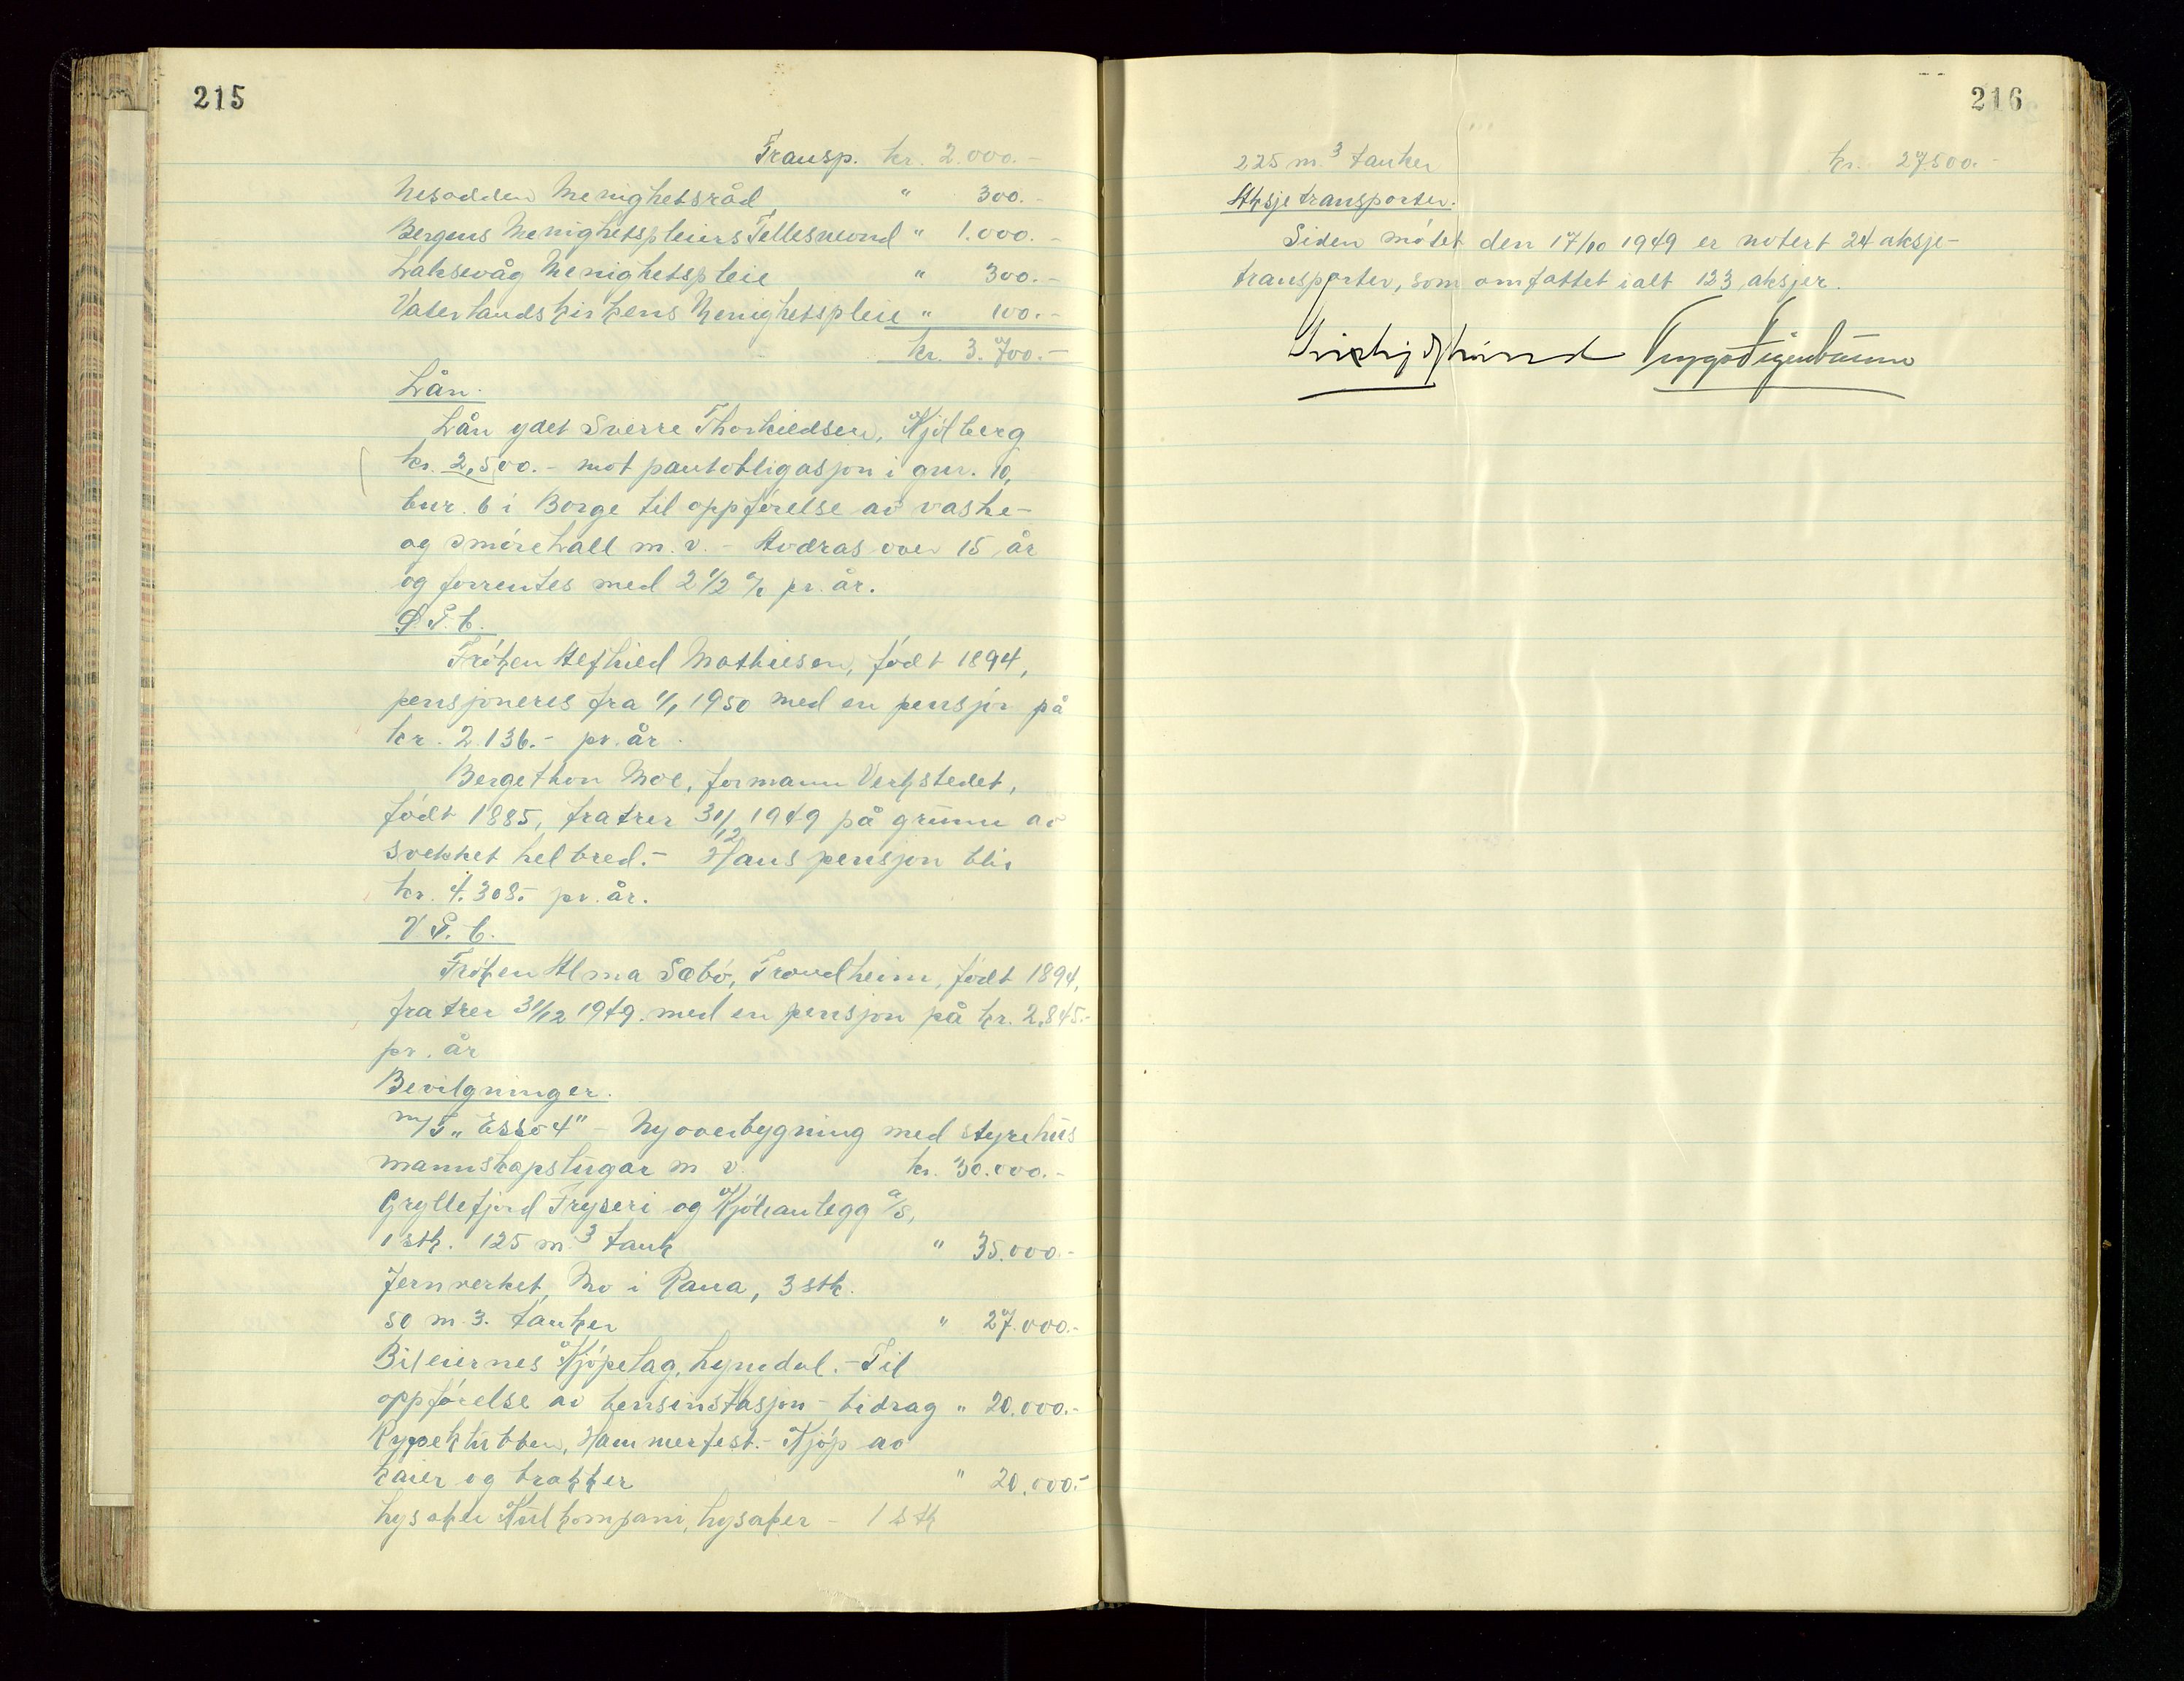 215
Transp. kr. 2.000.-
Nesodden Menighetsråd " 300.-
Bergens Menighetspleiers Fellesråd " 1.000.-
Laksevåg Menighetspleie " 300.-
Vaterlandskirkens Menighetspleie " 100.-
kr. 3.700.-
Lån.
Lån ydet Sverre Thorkildsen, Kjølberg
kr. 2,500.- mot pantobligasjon i gnr. 10,
bnr. 6 i Borge til oppførelse av vaske-
og smørehall m.v. - Avdras over 15 år
og forrentes med 2 1/2 % pr. år.
Ø.P.6.
Frøken Alfhild Mathiesen, født 1894,
pensjoneres fra 1/1 1950 med en pensjon på
kr. 2.136.- pr. år.
Bergethon Moe, formann Verkstedet,
født 1885, fratrer 31/12 1949 på grunn av
svekket helbred.- Hans pensjon blir
kr. 4.308.- pr. år.
V.P.6.
Frøken Alma Sæbø, Trondheim, født 1894,
fratrer 31/12 1949 med en pensjon på kr. 2.845.-
pr. år
Bevilgninger.
m/T "Esso 4" - Ny overbygning med styrehus
mannskapslugar m.v. kr. 30.000.-
Gryllefjord Fryseri og Kjøleanlegg a/s,
1 stk. 125 m.3 tank " 35.000.-
Jernverket, Mo i Rana, 3 stk.
50 m.3. tanker " 27.000.-
Bileiernes Kjøpelag, Lyngdal. - Til
oppførelse av bensinstasjon - bidrag " 20.000.-
Rypeklubben, Hammerfest. - Kjøp av
kaier og brakker " 20.000.-
Lysaker Kullkompani, Lysaker - 1 stk
216
225 m.3 tanker kr. 27.500.-
Aksjetransporter.
Siden møtet den 17/10 1949 er notert 24 aksje-
transporter, som omfattet ialt 123 aksjer.